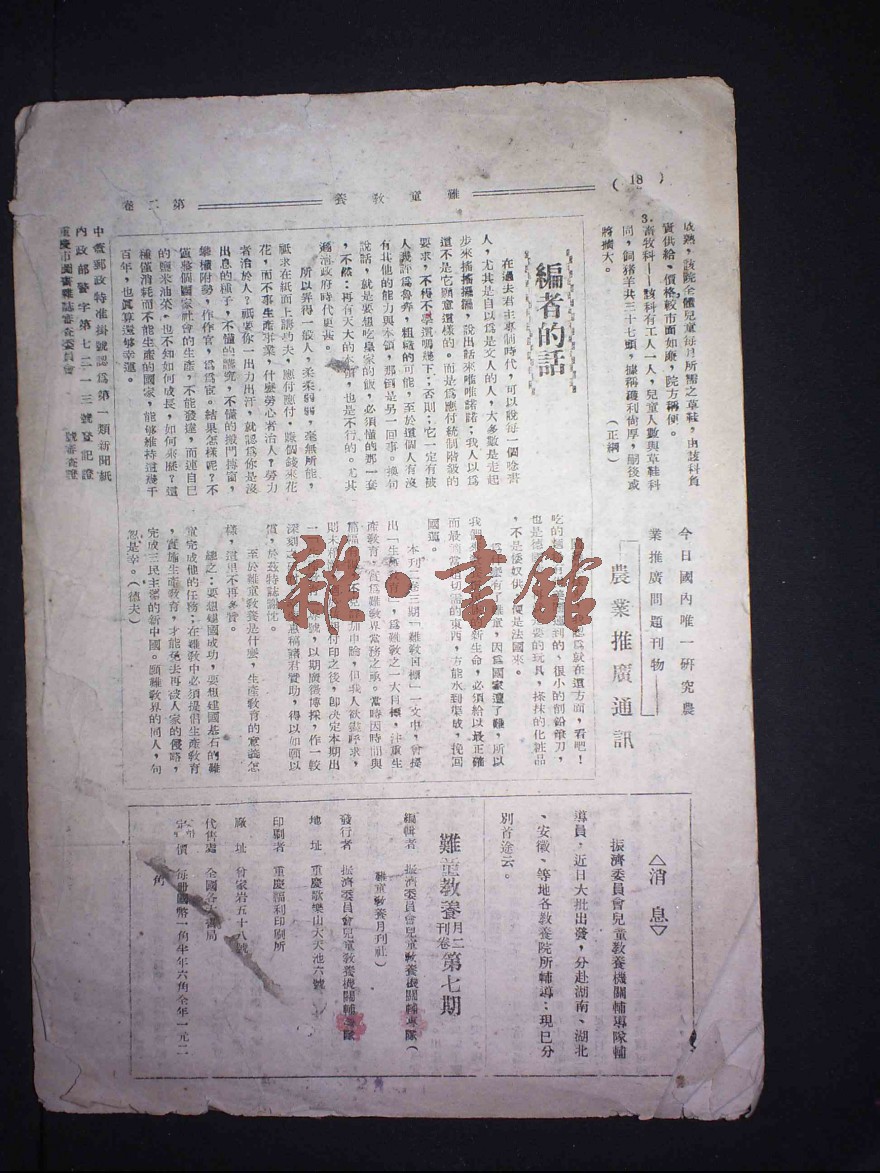 (18)
難童教養
第二卷
成熟，該院全體兒童每月所需之草鞋，由該科負
責供給，價格較市面如廉，院方稱便。
3.畜牧科——該科有工人一人，兒童人數與草鞋科
同，飼猪羊共三十七頭，據稱獲利尙厚，嗣後或
將擴大。
（正綱）
今日國內唯一研究農
業推廣問題刊物——
農業推廣通訊
編者的話
在過去君主專制時代，可以說每一個唸書
人，尤其是自以爲是文人的人，大多數是走起
步來搖搖擺擺，說出話來唯唯諾諾；我人以爲
這不是它願意這樣的。而是爲應付統制階級的
要求，不得不學這嗎幾下；否則；它一定有被
人譏評爲魯莽，粗陋的可能，至於這個人有沒
有其他的能力與本領，那倒是另一回事。換句
說話，就是要想吃皇家的飯，必須懂的那一套
，不然：再有天大的本領，也是不行的。尤其
滿清政府時代更甚。
所以弄得一般人，柔柔弱弱，毫無所能，
祗求在紙面上講功夫，應付應付，賺個錢來花
花，而不事生產事業，什麼勞心者治人？勞力
者治於人？祗要你一出力出汗，就認爲你是沒
出息的種子，不懂的講究，不懂的衙門摶窗，
攀權附勢，作作官，爲爲宦。結果怎樣呢？不
僅將個國家社會的生產，不能發達，而連自己
的鹽米油柴，也不知如何成長，如何來歷？這
種僅消耗而不能生產的國家，能够維持這幾千
百年，也眞算還够幸運。
爲就在這方面，看吧！
吃的
到的，很小的削鉛筆刀，
也是德
要的玩具，搽抹的化粧品
，不是倭奴供
便是法國來。
麼有了難童，因爲國家遭了難，所以
我們
新生命，必須給以最正確
而最適當迫切需的東西，方能水到渠成，挽囘
國運。
本刊二卷三期「難教目標」一文中，曾提
出「生
育」，爲難教之一大目標，注重生
產教育，實爲難教界當務之承。當時因時間與
篇幅
加申論，但我人欲盡呼求，
則未
期付印之後，卽決定本期出
一
專號，以期廣徵博採，作一較
深刻之
惠稿諸君贊助，得以如願以
償，於茲特誌謝忱。
至於難童教養是什麼，生產教育的意義怎
樣，這里不再多贅。
總之：要想建國成功，要想建國基石的難
童完成他的任務；在難教中必須提倡生產教育
，實施生產教育，才能免去再被人家的侵略，
完成三民主義的新中國。願難教界的同人，句
忽是幸。（德夫）
中華郵政特准掛號認爲第一類新聞紙
內政部警字第七二一三號登記證
重慶市圖書雜誌審查委員會　號審查證
△消息▽
振濟委員會兒童教養機關輔導隊輔
導員，近日大批出發，分赴湖南、湖北
、安徽、等地各教養院所輔導；現已分
別首途云。
難童教養月刊二卷第七期
編輯者　振濟委員會兒童教養機關輔導隊（
難童教養月刊社）
發行者　振濟委員會兒童教養機關輔導隊
地　址　重慶歌樂山大天池六號
印刷者　重慶福利印刷所
廠　址　曾家岩五十八號
代售處　全國各大書局
定　價　每冊國幣一角半年六角全年一元二
角
雜·書館